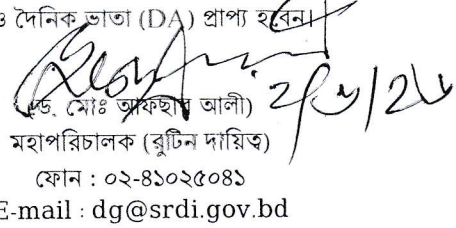 ও দৈনিক ভাতা (DA) প্রাপ্য হবেন।
(ড. মোঃ আফছার আলী)
মহাপরিচালক (রুটিন দায়িত্ব)
ফোন : ০২-৪১০২৫০৪১
E-mail : dg@srdi.gov.bd